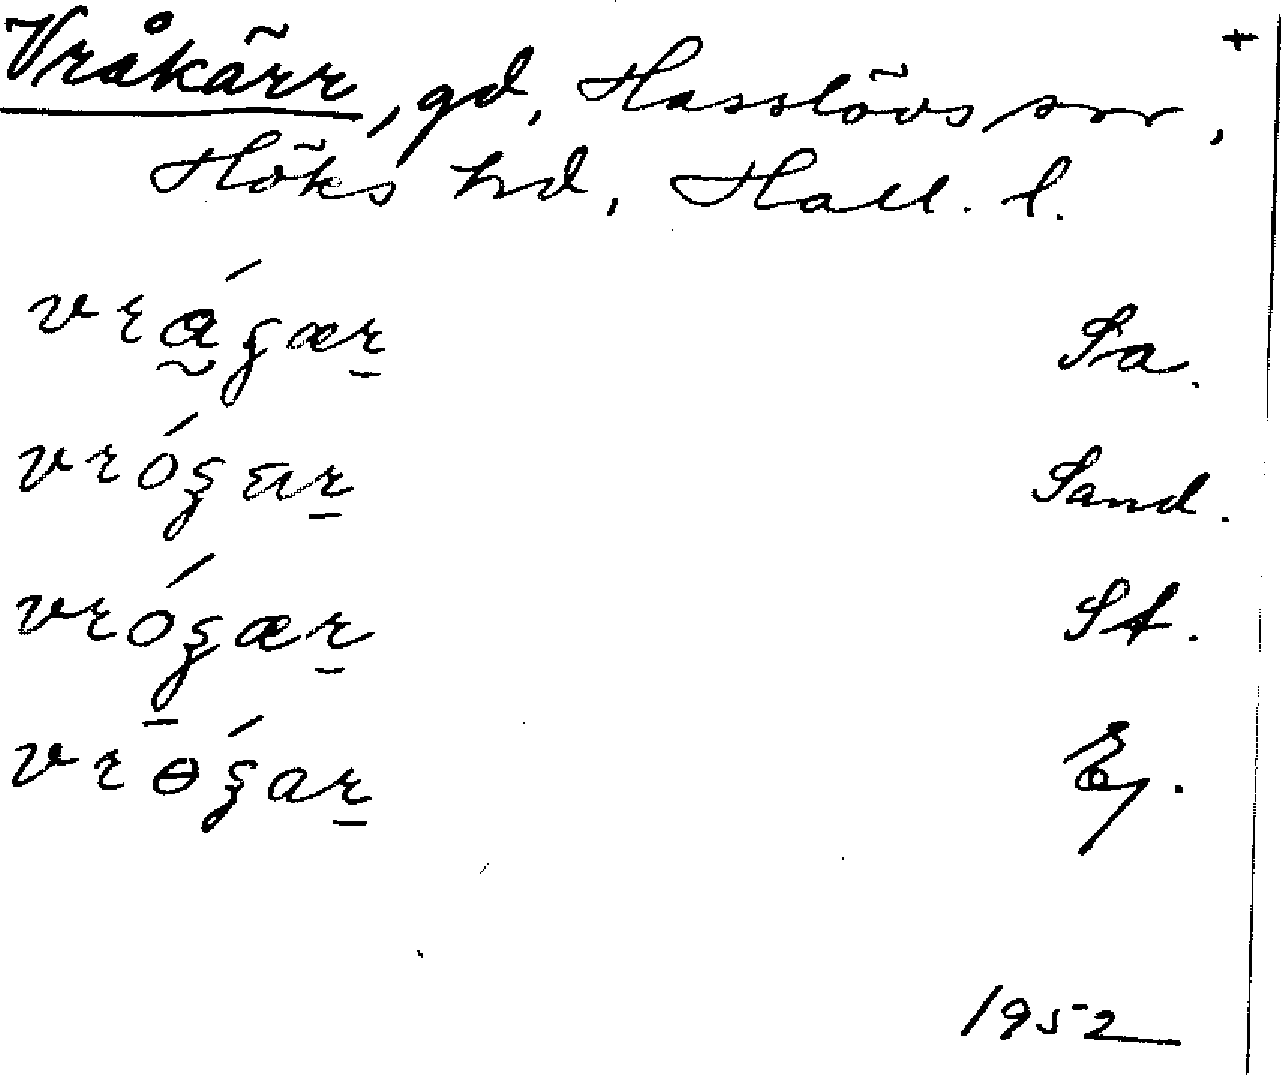 Vråkärr, gd, Hasslövs snr, +
Höks hd, Hall. l.
vrágær Sa.
vrógar Sand.
vrógær St.
vrɵ́gar Ej.
1952